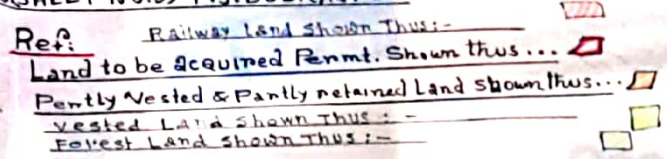 Ref: Railway Land Shown Thus:-
Land to be acquired Permt. Shown thus...
Pertly Vested & Partly retained Land shown thus...
Vested Land Shown Thus : -
Forest Land Shown Thus : -